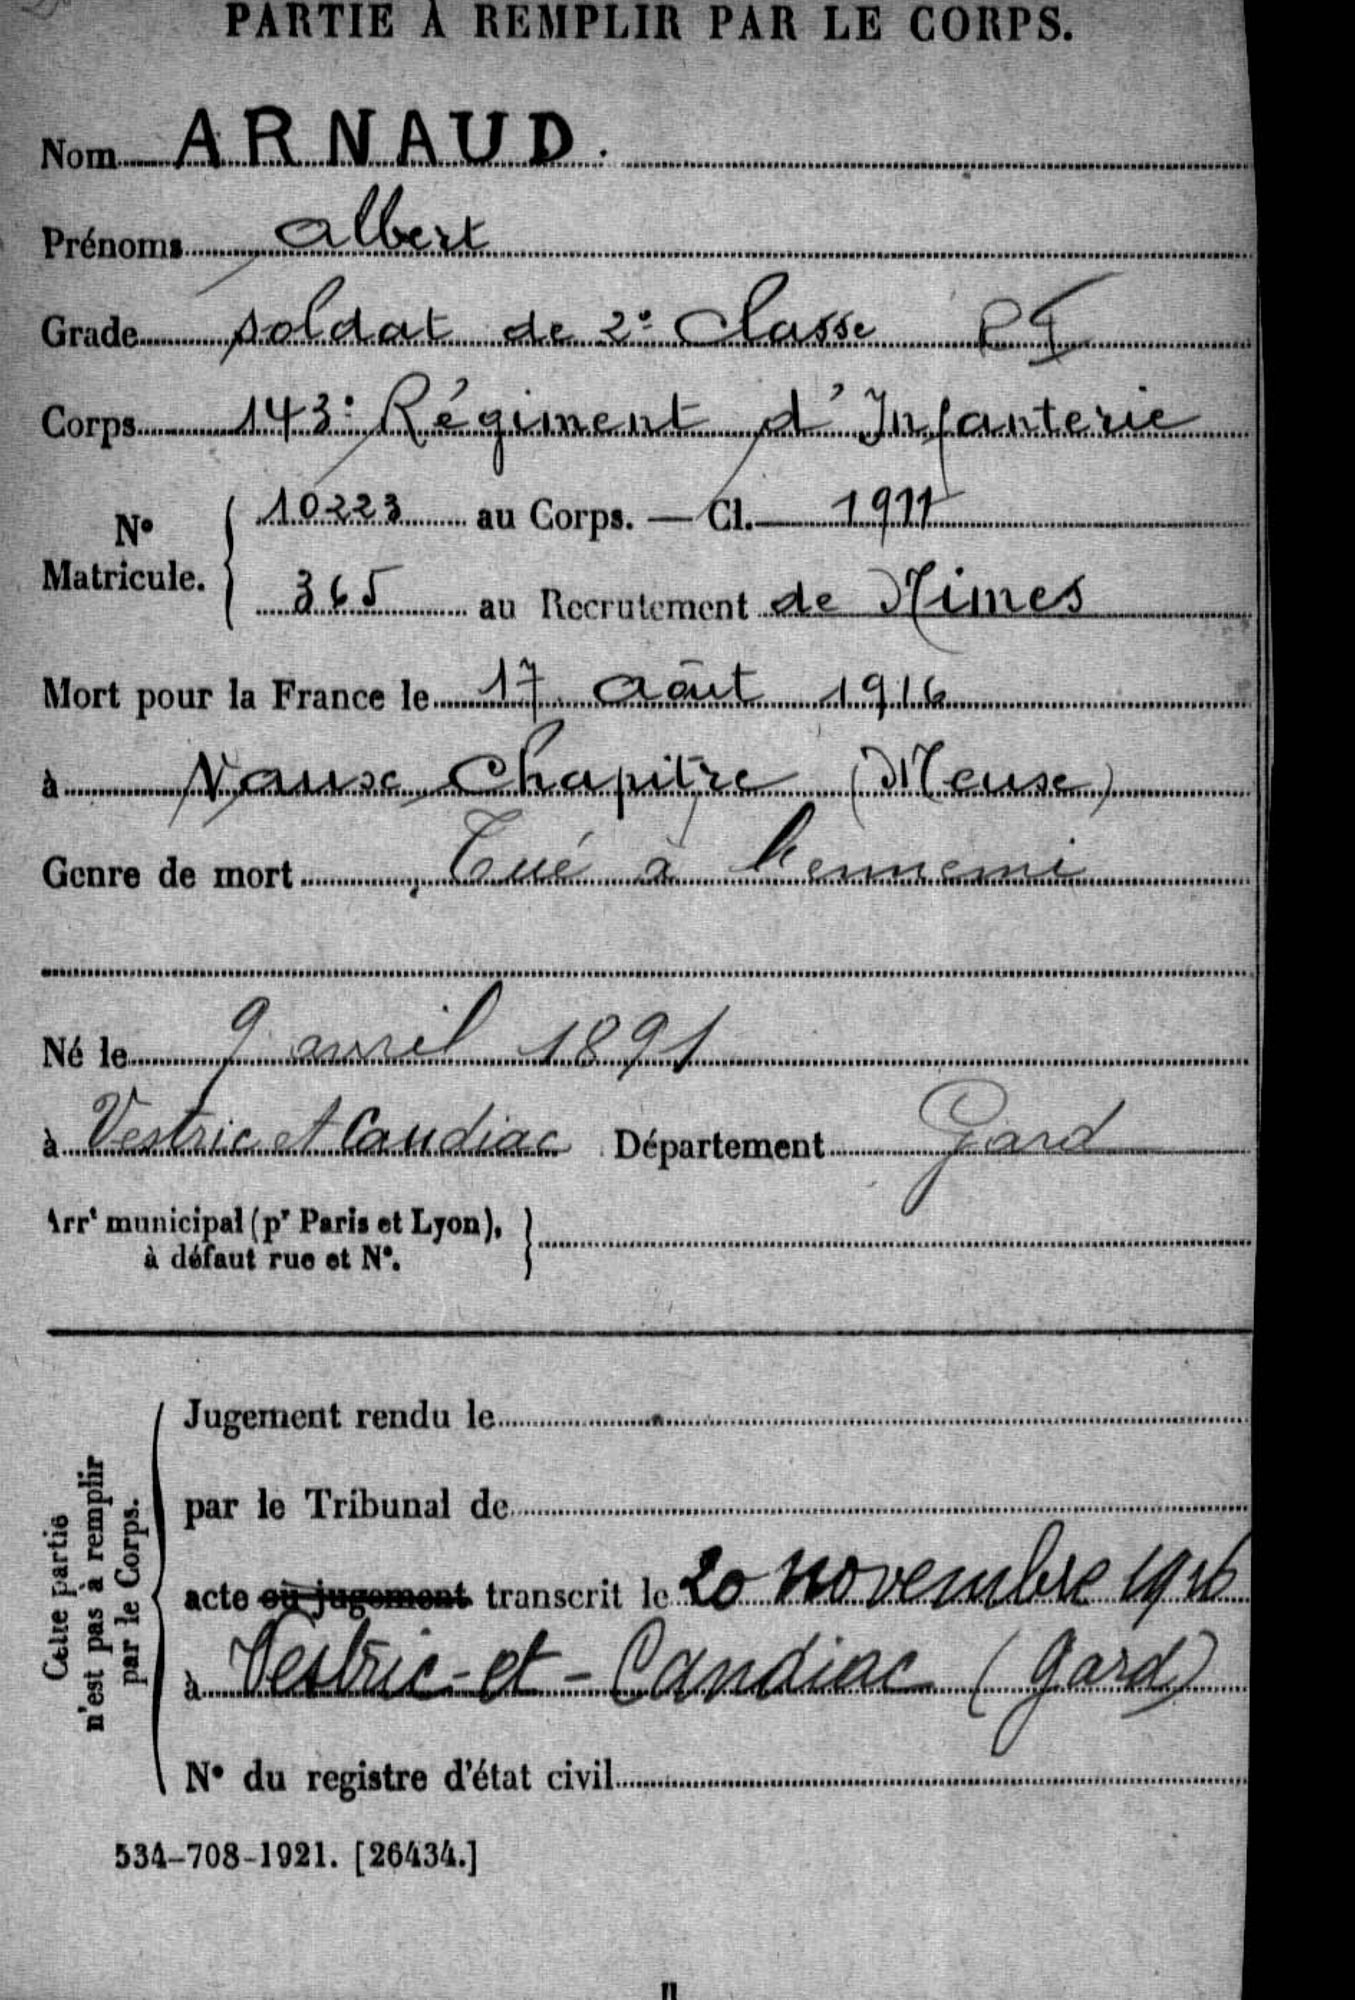 PARTIE À REMPLIR PAR LE CORPS.
Nom ARNAUD.
Prénoms Albert
Grade soldat de 2e Classe
Corps 143e Régiment d'Infanterie
N° Matricule. 10223 au Corps. — Cl. 1911
365 au Recrutement de Nimes
Mort pour la France le 17 Août 1916
à Vaux Chapitre (Meuse)
Genre de mort Tué à l'ennemi
Né le 9 avril 1891
à Vestric et Candiac Département Gard
Arrt municipal (pr Paris et Lyon),
à défaut rue et N°.
Cette partie
n'est pas à remplir
par le Corps.
Jugement rendu le
par le Tribunal de
acte ou jugement transcrit le 20 novembre 1916
à Vestric-et-Candiac (Gard)
N° du registre d'état civil
534-708-1921. [26434.]